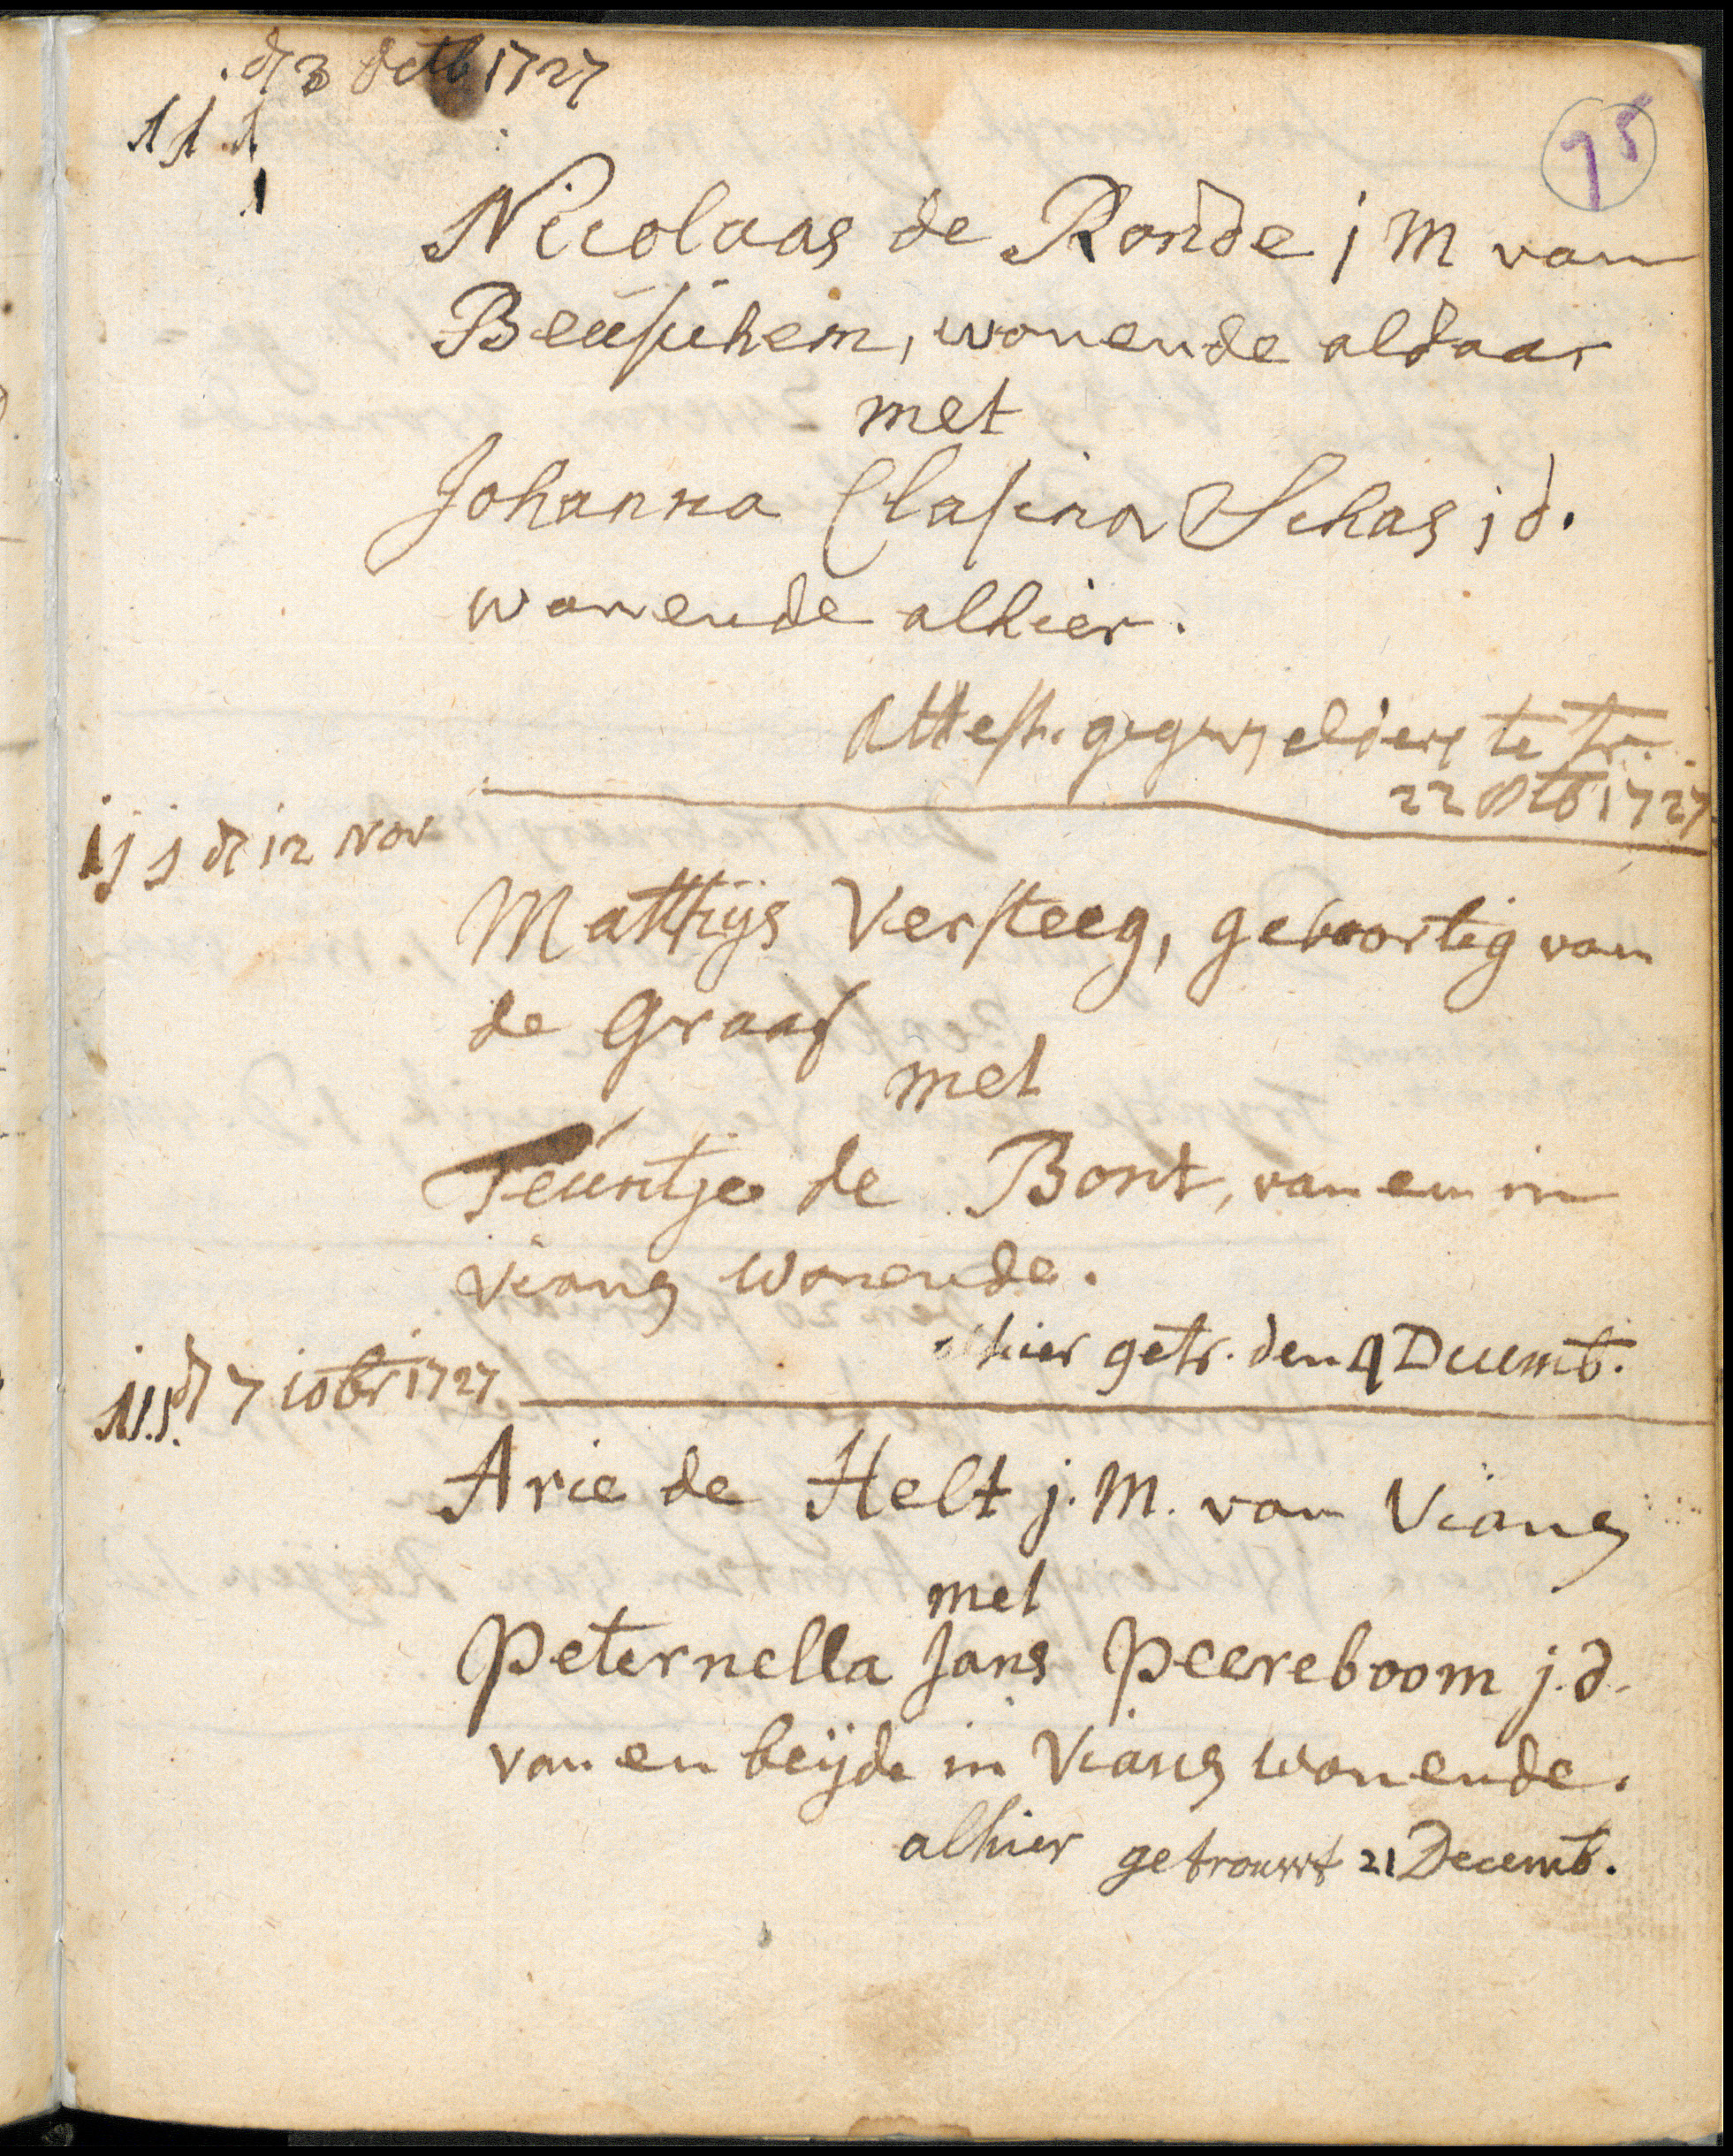 dn 3 Octb 1727
1 1 1
1
75
Nicolaas de Ronde j M van
Beusichem, wonende aldaar
met
Johanna Clasina Schas j d.
wonende alhier.
Attest. gegeven elders te tr.
22 Octb 1727
1 j j dn 12 Nov
Matthijs Versteeg, geboortig van
de Graaf
met
Teuntje de Bont, van en in
Vianen wonende.
alhier getr. den 9 Decemb.
1 1 1. dn 7 10br 1727
Arie de Helt j. M. van Vianen
met
Peternella Jans Peereboom j. d.
van en beijde in Vianen wonende.
alhier getrouwt 21 Decemb.